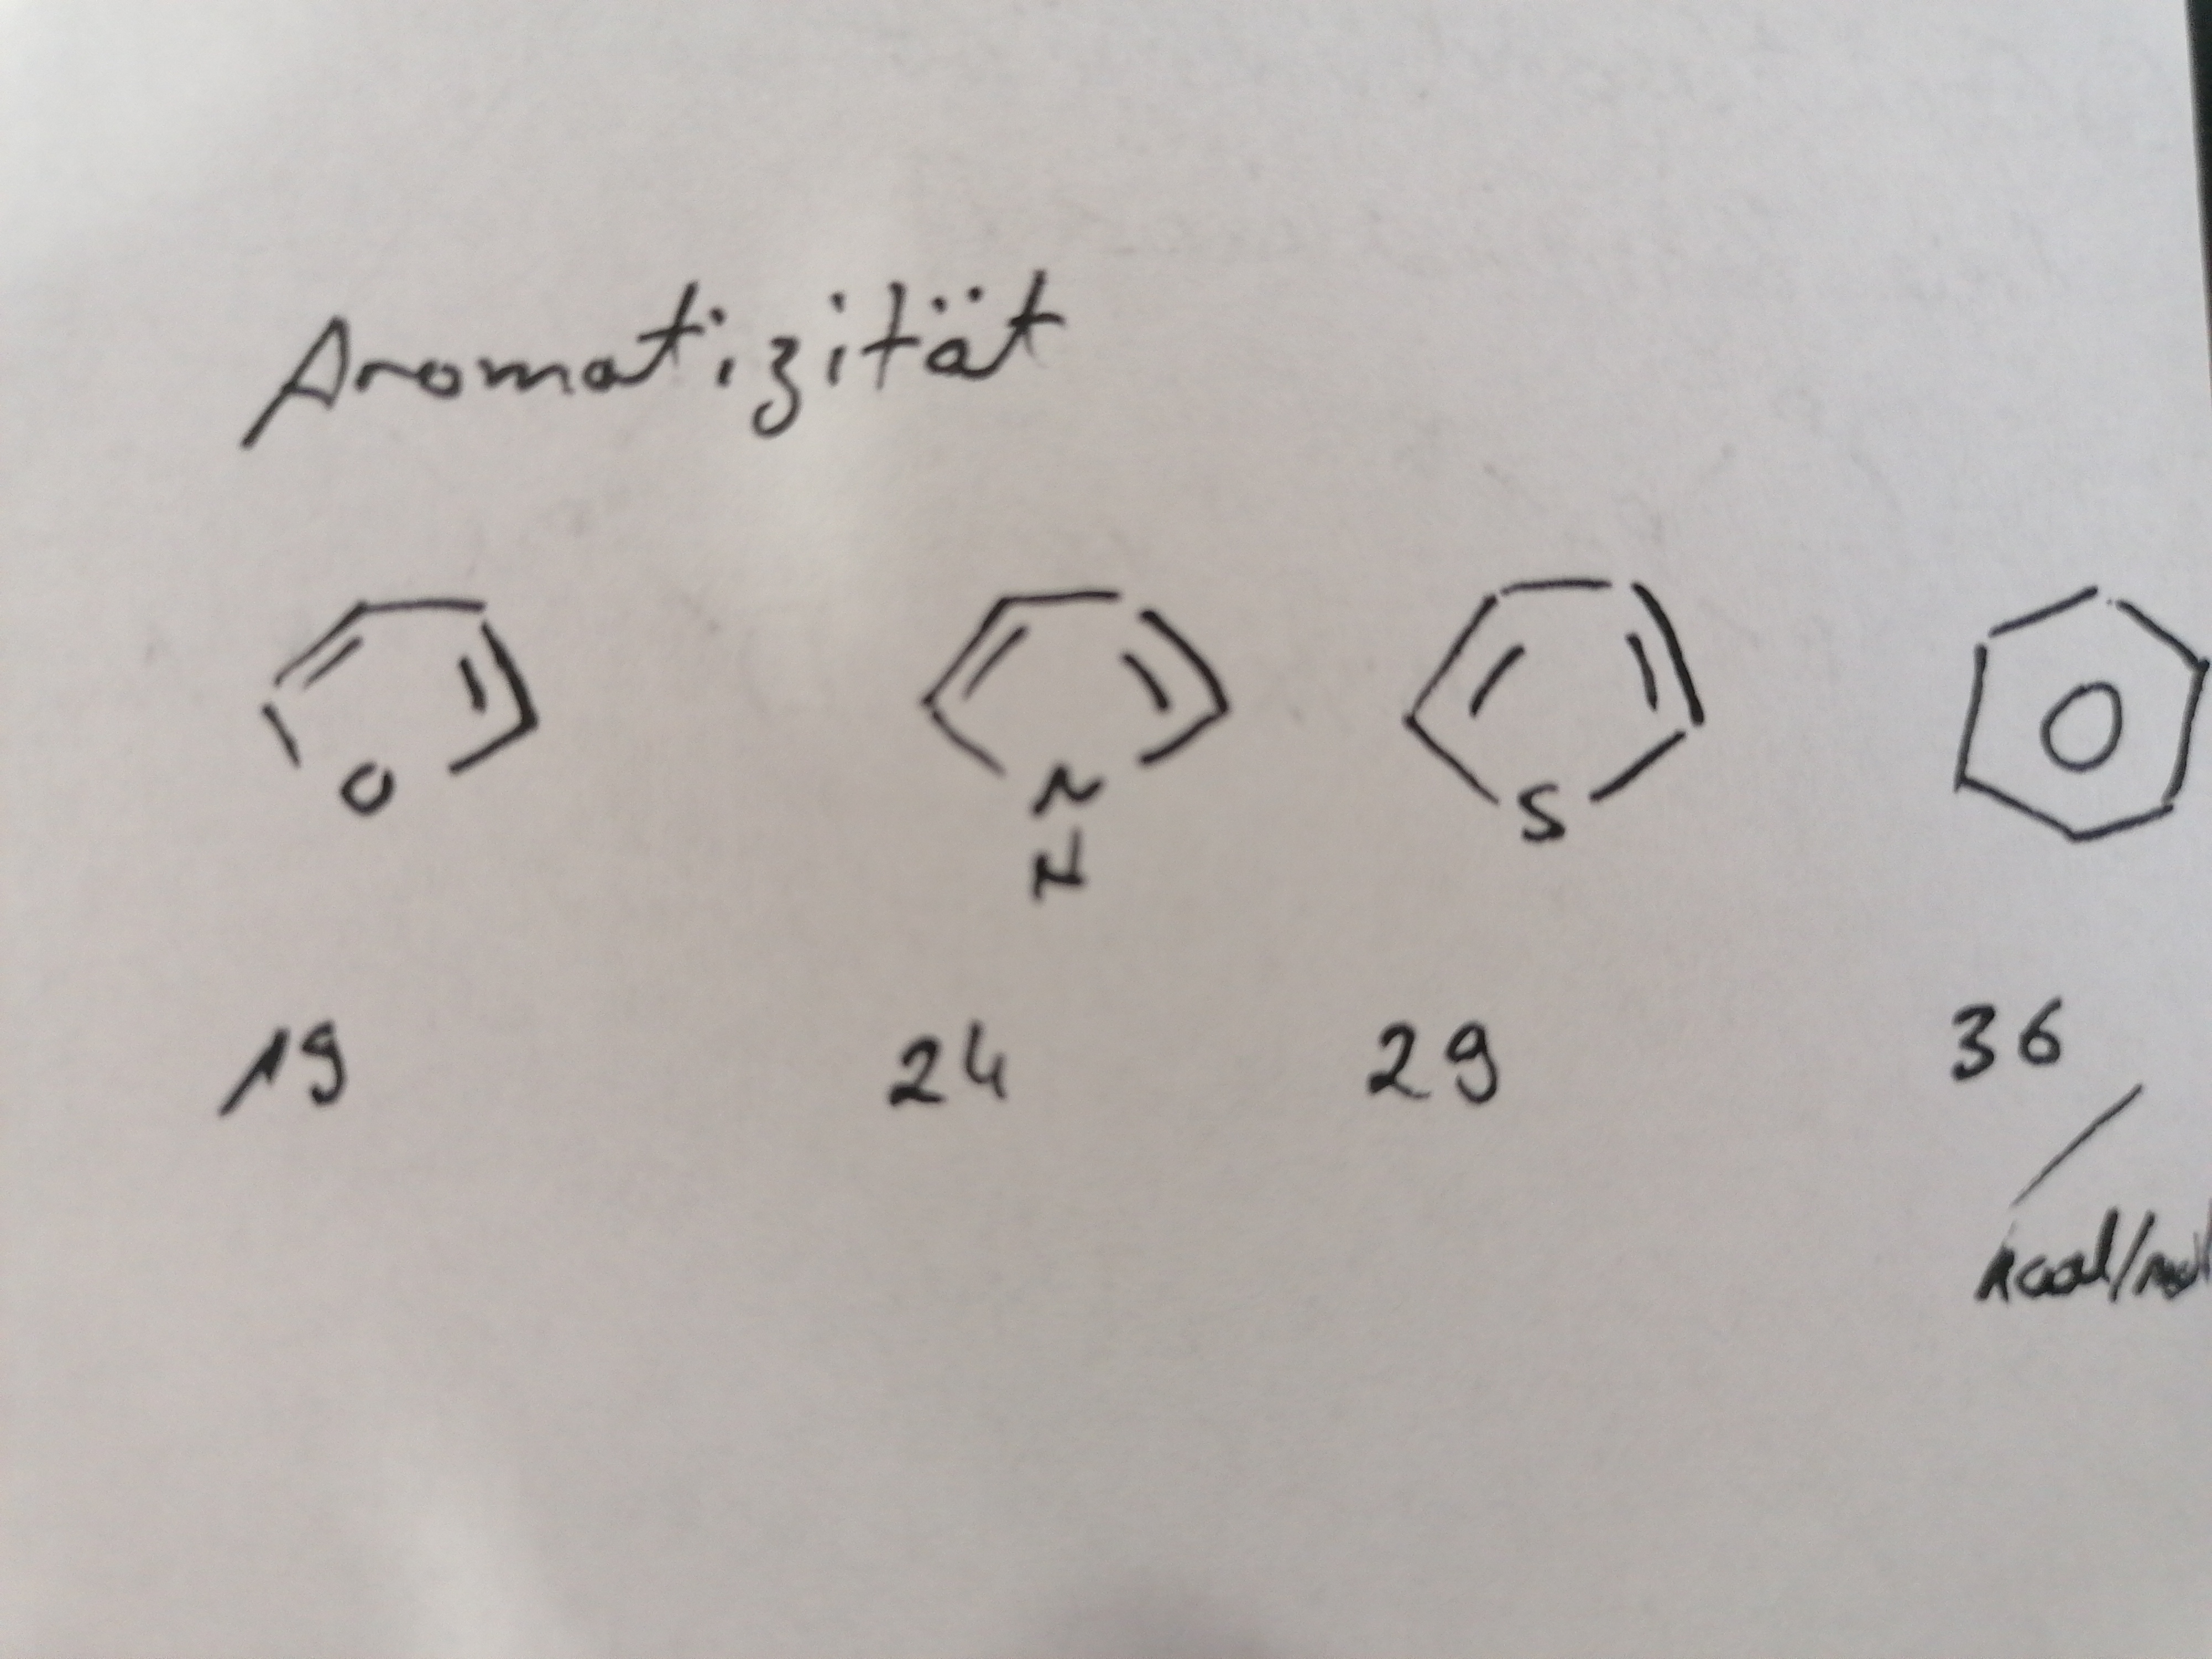 Aromatizität
O N S
H
19 24 29 36
kcal/mol